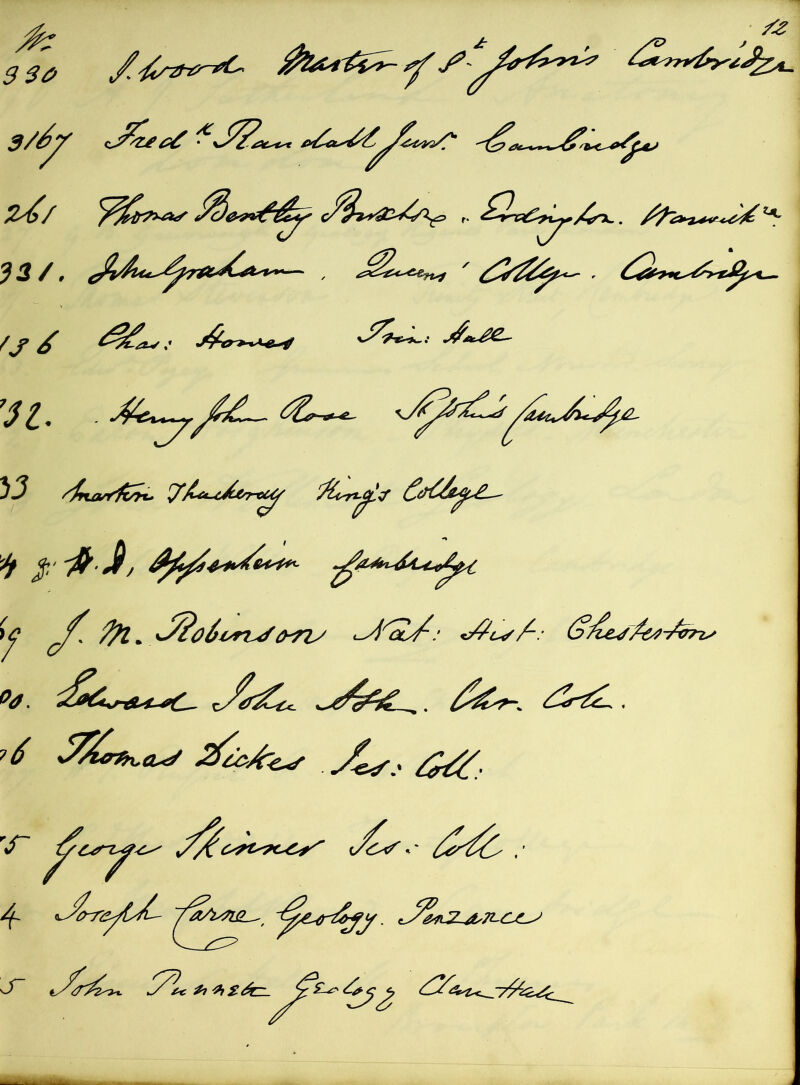 12
No
330 J. Wood Master of St John's Cambridge
3167 Fredk Randall Junr. Cambridge
261 Thomas Bentley Buxton. Erdington. Warwick
331. John Graham. Queens' College. Cambridge
136 Chas: Howes Trin: Hall
32. Henry John Rose St John's Cambridge
33 Martin Thackeray King's College
4 Oppenheim Cambridge
9 J. M. Robinson Nat: Hist: Chesterton
0. Edward John Ash. Chr. Coll.
6 Thomas Dickes Jes: Coll:
5 George Skinner Jes: Coll:
4 Joseph Carne. Geology. Penzance
5 John Punnett Geology Clare Hall